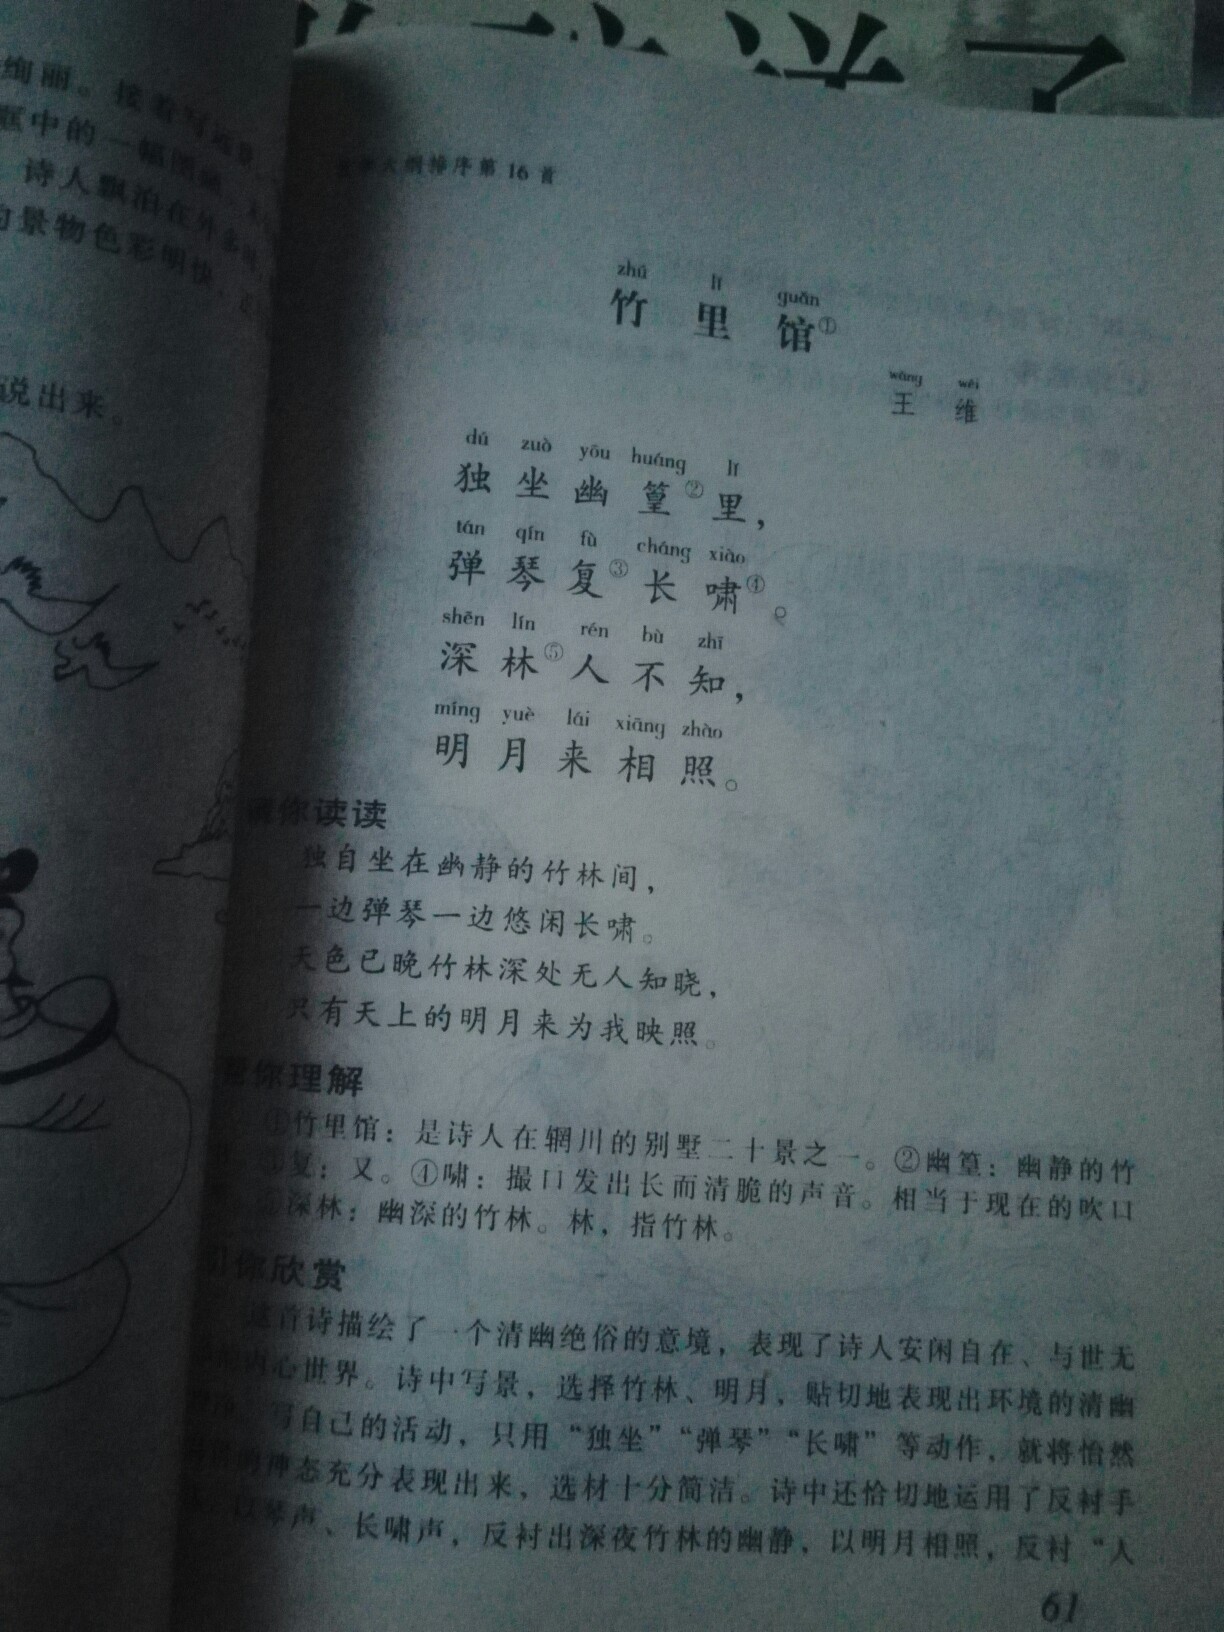 绚丽。接着写远景
框中的一幅图画
诗人飘泊在外多
景物色彩明快
说出来。
大纲排序第16首
zhú lǐ guǎn
竹里馆①
wáng wéi
王维
dú zuò yōu huáng lǐ
独坐幽篁②里，
tán qín fù cháng xiào
弹琴复③长啸④。
shēn lín rén bù zhī
深林⑤人不知，
míng yuè lái xiāng zhào
明月来相照。
你读读
独自坐在幽静的竹林间，
一边弹琴一边悠闲长啸。
天色已晚竹林深处无人知晓，
只有天上的明月来为我映照。
你理解
①竹里馆：是诗人在辋川的别墅二十景之一。②幽篁：幽静的竹
复：又。④啸：撮口发出长而清脆的声音。相当于现在的吹口
深林：幽深的竹林。林，指竹林。
你欣赏
这首诗描绘了一个清幽绝俗的意境，表现了诗人安闲自在、与世无
内心世界。诗中写景，选择竹林、明月，贴切地表现出环境的清幽
写自己的活动，只用“独坐”“弹琴”“长啸”等动作，就将怡然
的神态充分表现出来，选材十分简洁。诗中还恰切地运用了反衬手
以琴声、长啸声，反衬出深夜竹林的幽静，以明月相照，反衬“人
61